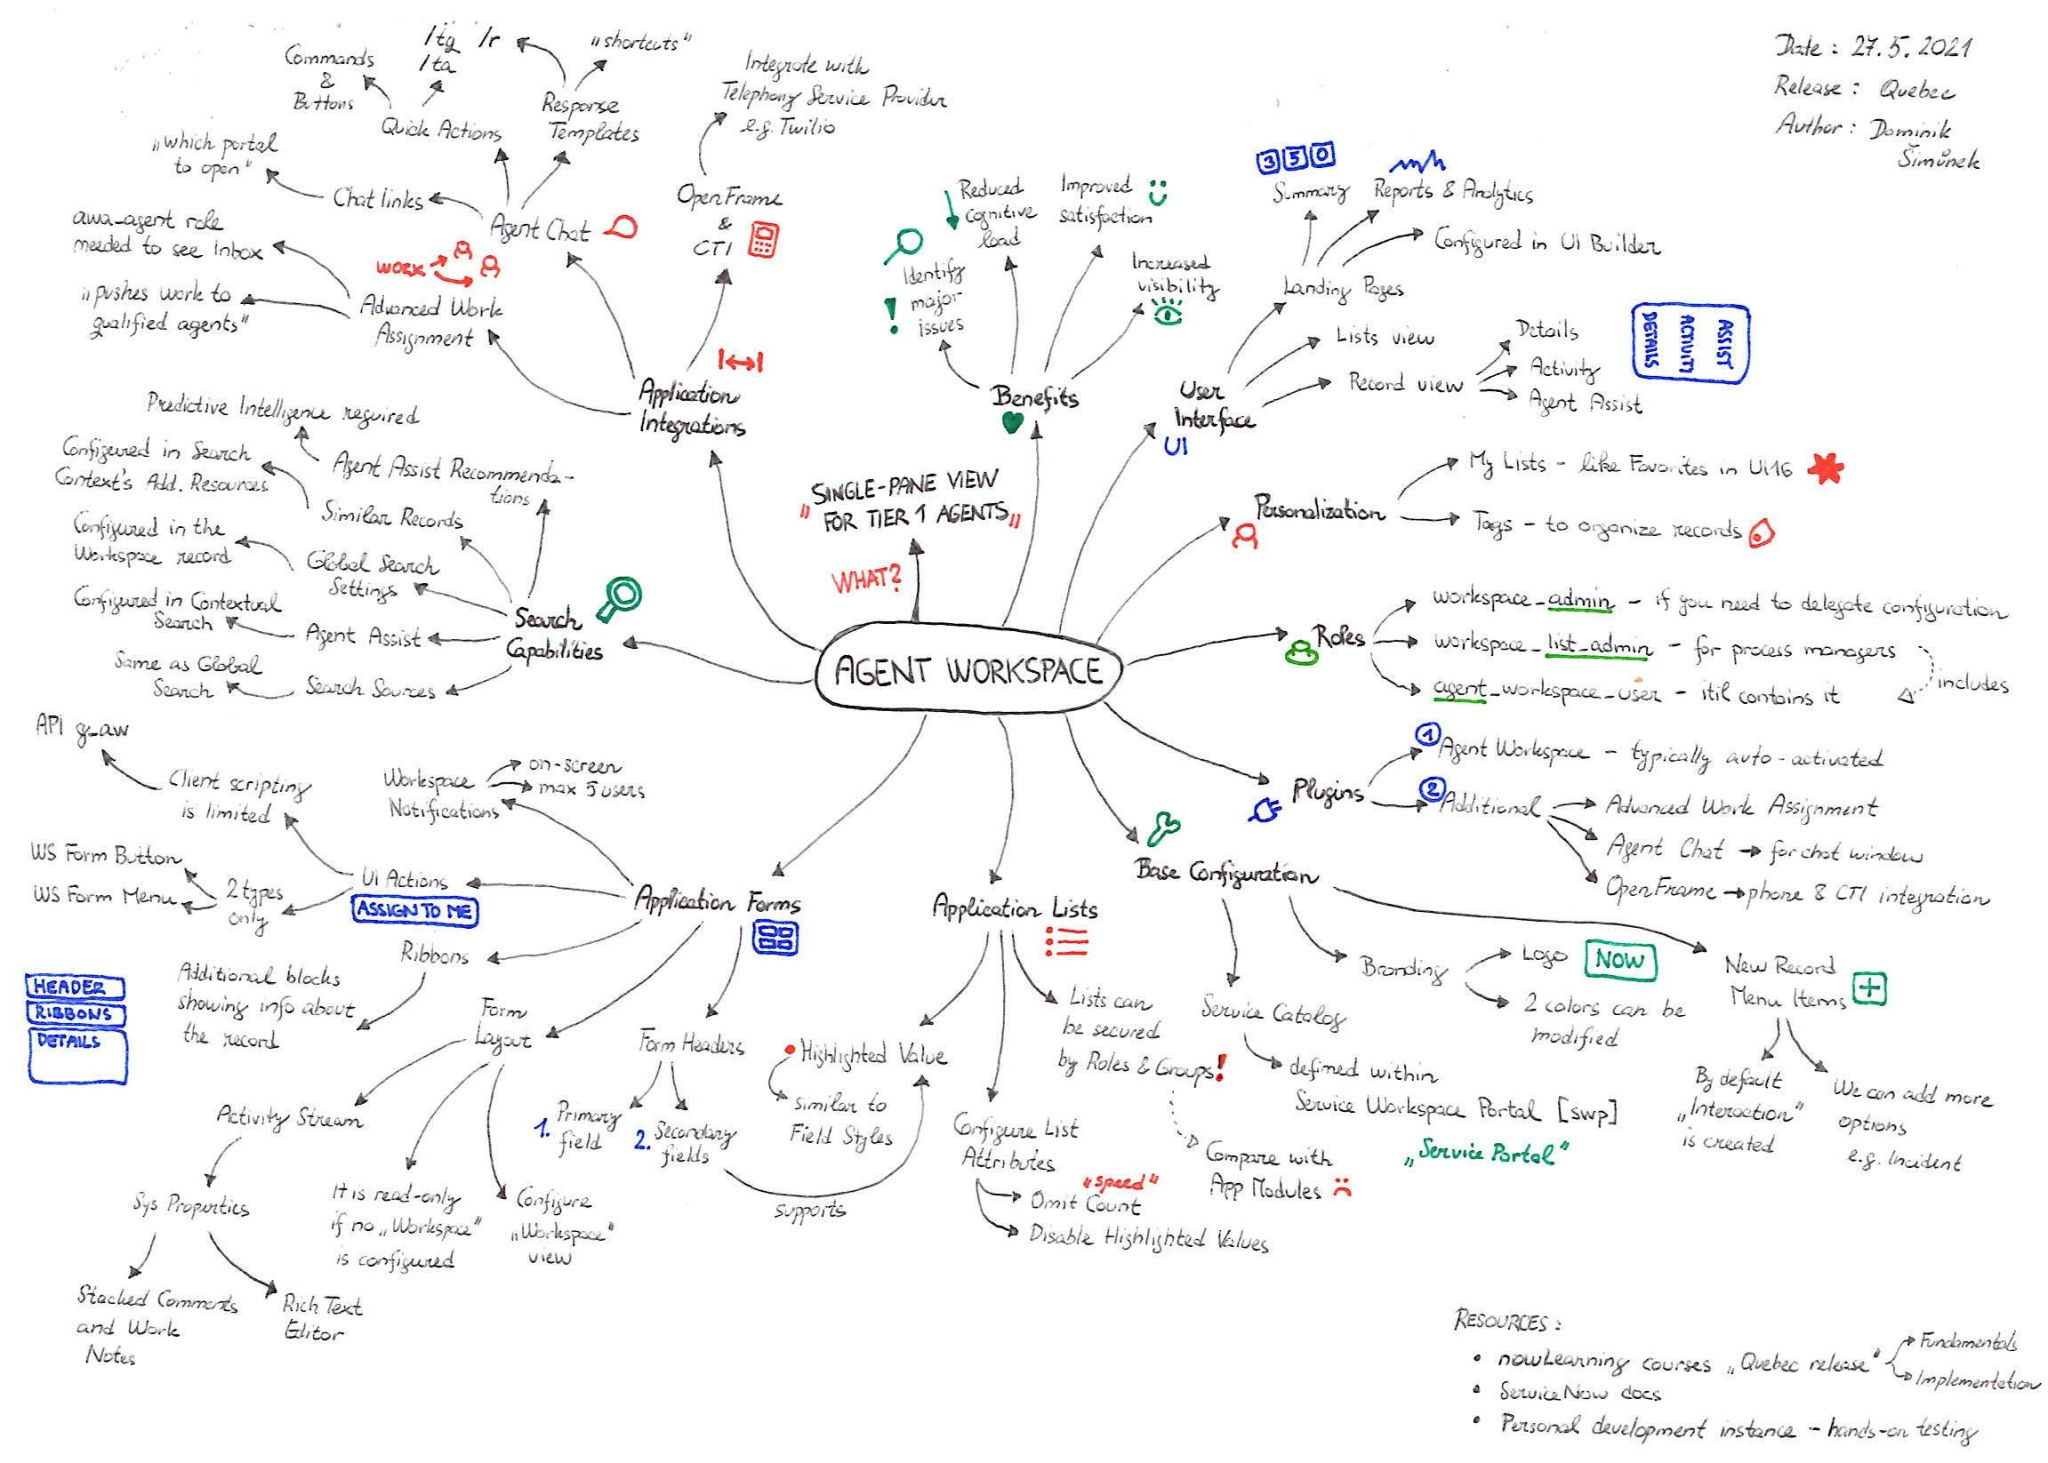 Date : 27.5.2021
Release : Quebec
Author : Dominik
Šimůnek
Commands
&
Buttons
/tg /r
/ta
"shortcuts"
Quick Actions
Response
Templates
Integrate with
Telephony Service Provider
e.g. Twilio
"which portal
to open"
Chat links
Agent Chat
OpenFrame
&
CTI
awa_agent role
needed to see Inbox
"pushes work to
qualified agents"
WORK
Advanced Work
Assignment
Application
Integrations
Reduced
cognitive
load
Improved
satisfaction
Identify
major
issues
!
Increased
visibility
Benefits
350
Summary
Reports & Analytics
Configured in UI Builder
Landing Pages
Lists view
Record view
Details
Activity
Agent Assist
DETAILS
ACTIVITI
ASSIST
User
Interface
UI
Predictive Intelligence required
Configured in Search
Context's Add. Resources
Agent Assist Recommenda-
tions
Similar Records
Configured in the
Workspace record
Global Search
Settings
Configured in Contextual
Search
Agent Assist
Same as Global
Search
Search Sources
Search
Capabilities
"SINGLE-PANE VIEW
FOR TIER 1 AGENTS"
WHAT?
AGENT WORKSPACE
Personalization
My Lists - like Favorites in UI16
Tags - to organize records
Roles
workspace_admin - if you need to delegate configuration
workspace_list_admin - for process managers
agent_workspace_user - itil contains it
includes
Plugins
1 Agent Workspace - typically auto-activated
2 Additional
Advanced Work Assignment
Agent Chat → for chat window
OpenFrame → phone & CTI integration
API g_aw
Client scripting
is limited
Workspace
Notifications
on-screen
max 5 users
WS Form Button
WS Form Menu
2 types
only
UI Actions
ASSIGN TO ME
Application Forms
Ribbons
Additional blocks
showing info about
the record
HEADER
RIBBONS
DETAILS
Form
Layout
Form Headers
1. Primary
field
2. Secondary
fields
supports
Activity Stream
Sys Properties
Stacked Comments
and Work
Notes
Rich Text
Editor
It is read-only
if no „Workspace"
is configured
Configure
„Workspace"
view
Application Lists
Highlighted Value
similar to
Field Styles
Lists can
be secured
by Roles & Groups!
Compare with
App Modules
Configure List
Attributes
"speed"
Omit Count
Disable Highlighted Values
Base Configuration
Service Catalog
defined within
Service Workspace Portal [swp]
„Service Portal"
Branding
Logo
NOW
2 colors can be
modified
New Record
Menu Items
By default
„Interaction"
is created
We can add more
options
e.g. Incident
RESOURCES :
• nowLearning courses „Quebec release"
Fundamentals
Implementation
• ServiceNow docs
• Personal development instance - hands-on testing